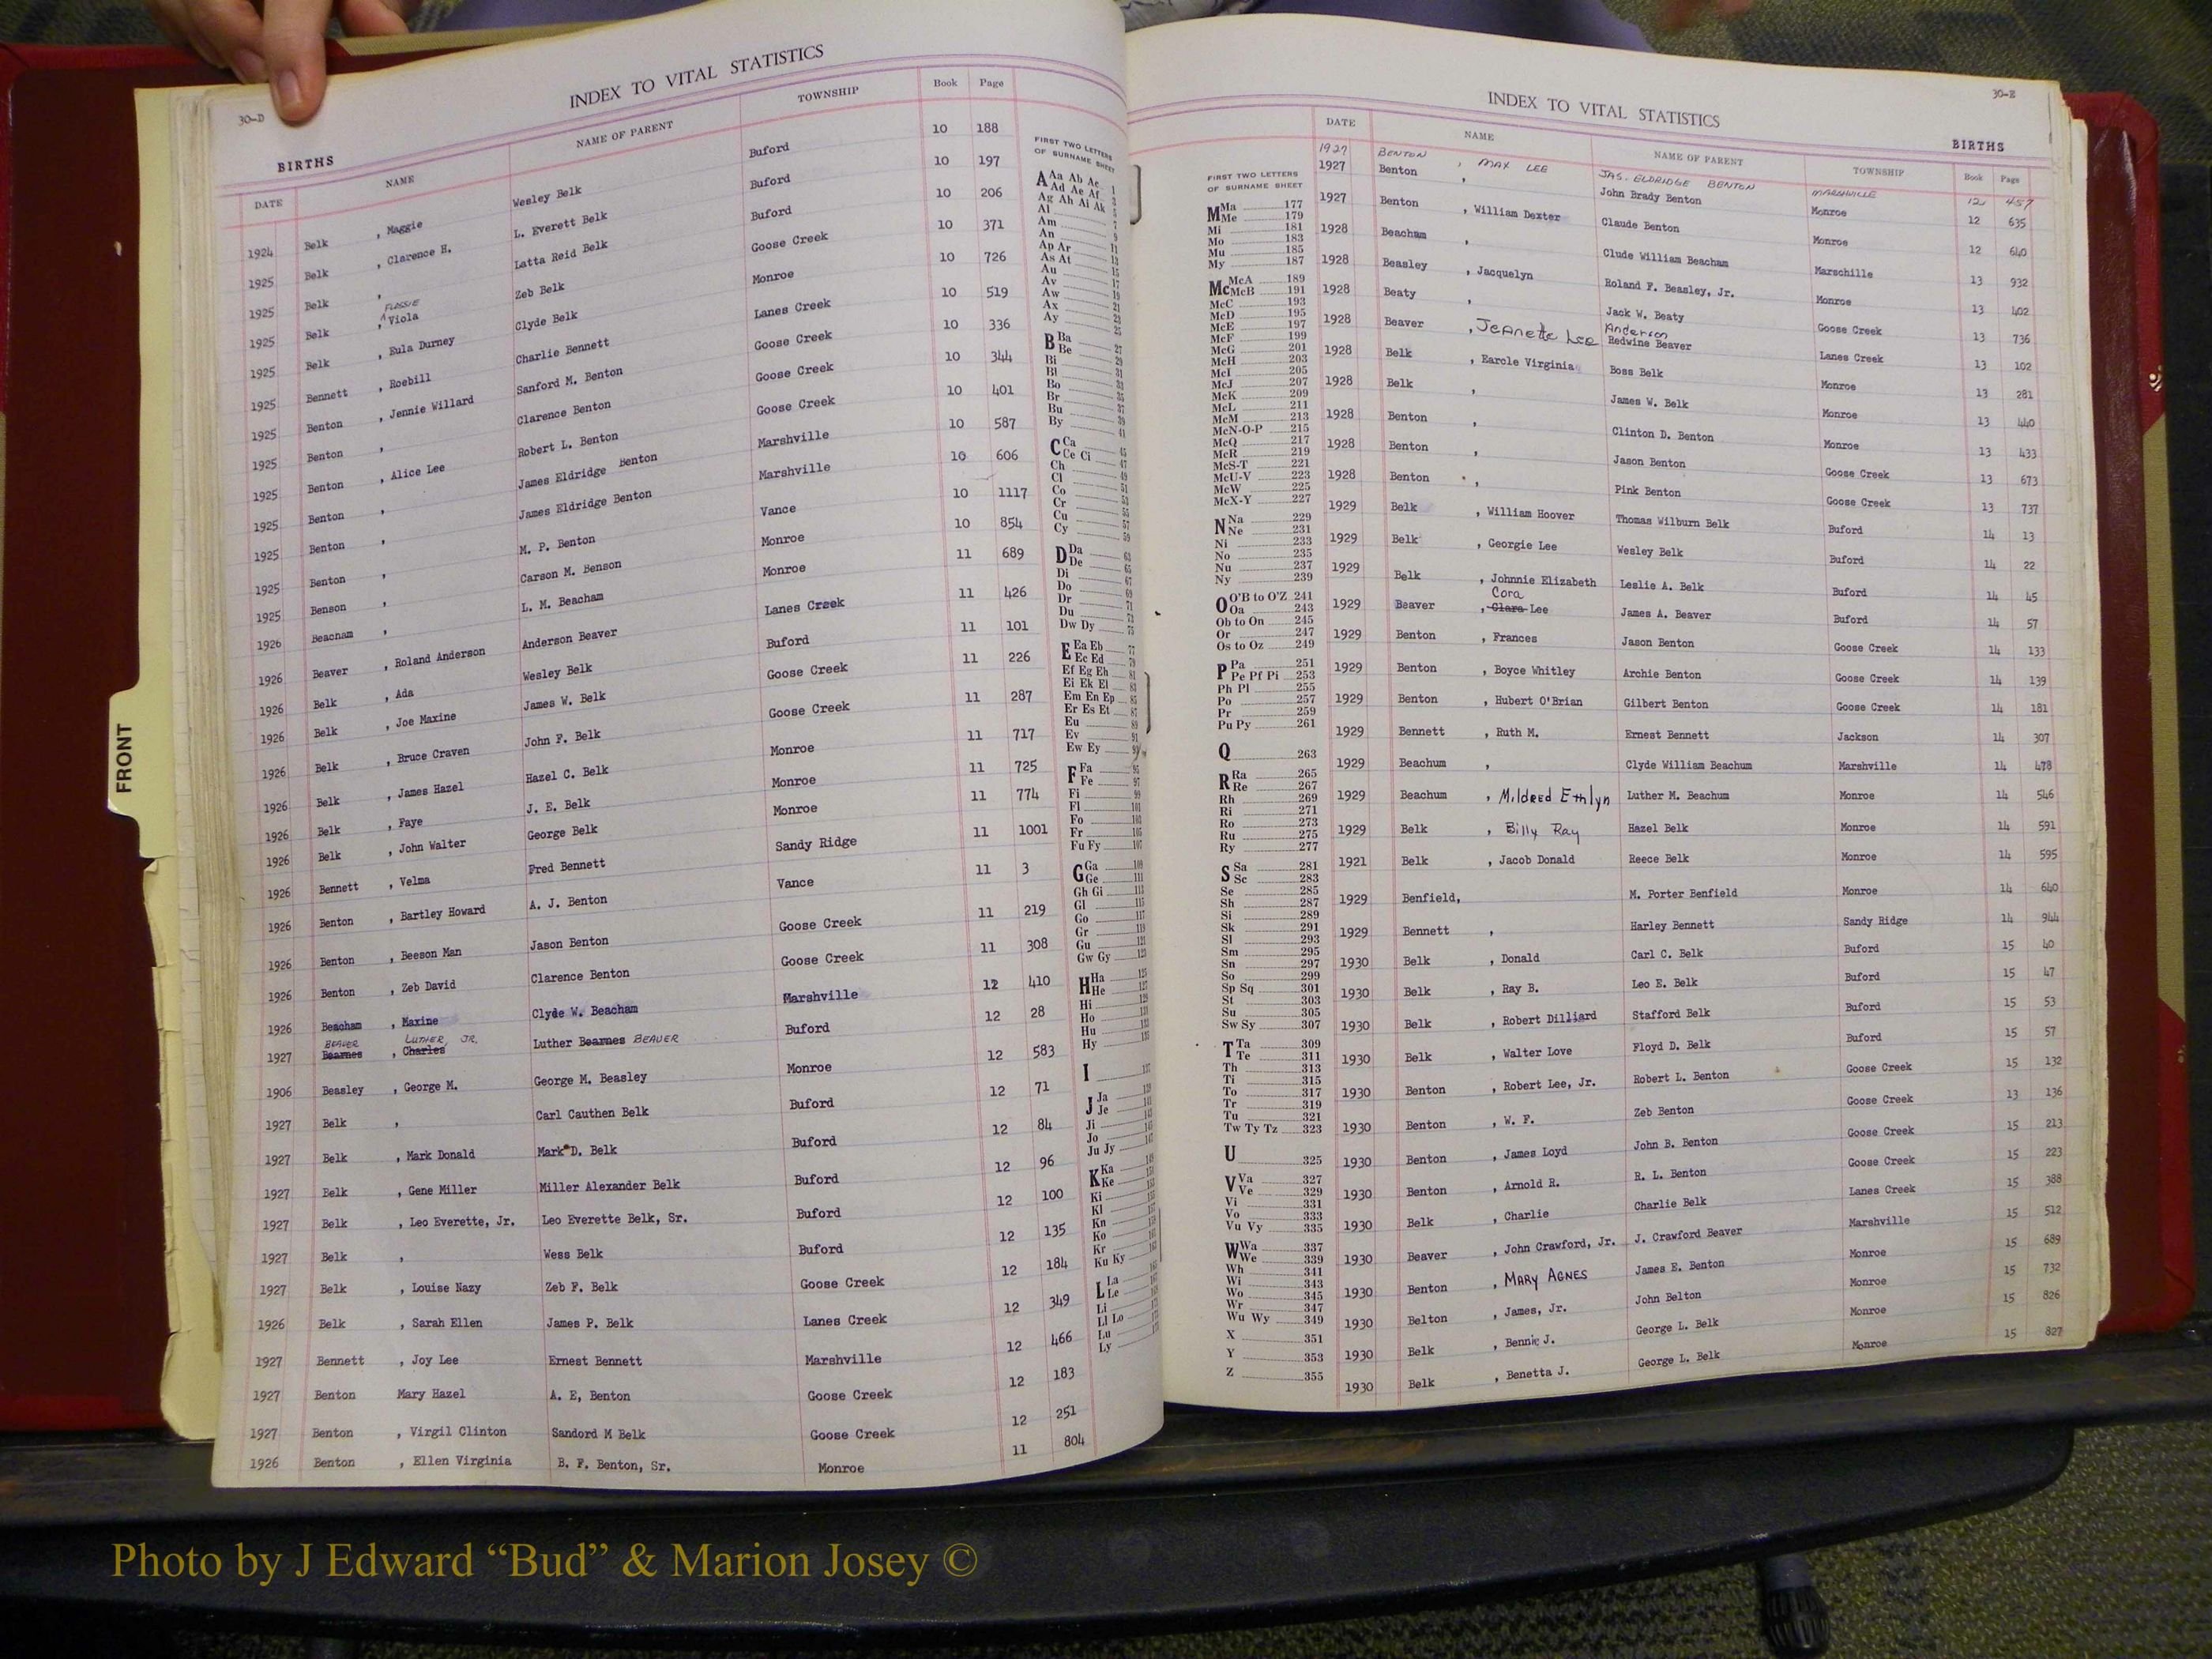 30-D
INDEX TO VITAL STATISTICS
BIRTHS
DATE NAME NAME OF PARENT TOWNSHIP Book Page
1924 Belk , Maggie Wesley Belk Buford 10 188
1925 Belk , Clarence H. L. Everett Belk Buford 10 197
1925 Belk , Latta Reid Belk Buford 10 206
FLOSSIE
1925 Belk , Viola Zeb Belk Goose Creek 10 371
1925 Belk , Eula Durney Clyde Belk Monroe 10 726
1925 Bennett , Roebill Charlie Bennett Lanes Creek 10 519
1925 Benton , Jennie Willard Sanford M. Benton Goose Creek 10 336
1925 Benton , Clarence Benton Goose Creek 10 344
1925 Benton , Alice Lee Robert L. Benton Goose Creek 10 401
1925 Benton , James Eldridge Benton Marshville 10 587
1925 Benton , James Eldridge Benton Marshville 10 606
1925 Benton , M. P. Benton Vance 10 1117
1925 Benson , Carson M. Benson Monroe 10 854
1926 Beacham , L. M. Beacham Monroe 11 689
1926 Beaver , Roland Anderson Anderson Beaver Lanes Creek 11 426
1926 Belk , Ada Wesley Belk Buford 11 101
1926 Belk , Joe Maxine James W. Belk Goose Creek 11 226
1926 Belk , Bruce Craven John F. Belk Goose Creek 11 287
1926 Belk , James Hazel Hazel C. Belk Monroe 11 717
1926 Belk , Faye J. E. Belk Monroe 11 725
1926 Belk , John Walter George Belk Monroe 11 774
1926 Bennett , Velma Fred Bennett Sandy Ridge 11 1001
1926 Benton , Bartley Howard A. J. Benton Vance 11 3
1926 Benton , Beeson Man Jason Benton Goose Creek 11 219
1926 Benton , Zeb David Clarence Benton Goose Creek 11 308
1926 Beacham , Maxine Clyde W. Beacham Marshville 12 410
BEAVER LUTHER, JR.
1927 Bearnes , Charles Luther Bearnes BEAVER Buford 12 28
1906 Beasley , George M. George M. Beasley Monroe 12 583
1927 Belk , Carl Cauthen Belk Buford 12 71
1927 Belk , Mark Donald Mark D. Belk Buford 12 84
1927 Belk , Gene Miller Miller Alexander Belk Buford 12 96
1927 Belk , Leo Everette, Jr. Leo Everette Belk, Sr. Buford 12 100
1927 Belk , Wess Belk Buford 12 135
1927 Belk , Louise Nazy Zeb F. Belk Goose Creek 12 184
1926 Belk , Sarah Ellen James P. Belk Lanes Creek 12 349
1927 Bennett , Joy Lee Ernest Bennett Marshville 12 466
1927 Benton Mary Hazel A. E, Benton Goose Creek 12 183
1927 Benton , Virgil Clinton Sandord M Belk Goose Creek 12 251
1926 Benton , Ellen Virginia B. F. Benton, Sr. Monroe 11 804
FIRST TWO LETTERS
OF SURNAME SHEET
A Aa Ab Ac 1
Ad Ae Af 3
Ag Ah Ai Ak 5
Al 7
Am 9
An
Ap Ar 11
As At 13
Au 15
Av 17
Aw 19
Ax 21
Ay
B Ba 27
Be 29
Bi
Bl 31
Bo 33
Br 35
Bu 37
By
C Ca 45
Ce Ci 47
Ch 49
Cl 51
Co
Cr
Cu 57
Cy 59
D Da 63
De 65
Di 67
Do 69
Dr 71
Du 73
Dw Dy 75
E Ea Eb 77
Ec Ed 79
Ef Eg Eh 81
Ei Ek El 83
Em En Ep 85
Er Es Et 87
Eu 89
Ev 91
Ew Ey 93
F Fa 95
Fe 97
Fi 99
Fl 101
Fo 103
Fr 105
Fu Fy 107
G Ga 109
Ge 111
Gh Gi 113
Gl 115
Go 117
Gr 119
Gu 121
Gw Gy 123
H Ha 125
He 127
Hi 129
Ho 131
Hu 133
Hy 135
I 137
J Ja 139
Je 141
Ji
Jo
Ju Jy 147
K Ka
Ke
Ki
Kl
Kn
Ko
Kr
Ku Ky
L La
Le
Li
Ll Lo
Lu
Ly
30-E
INDEX TO VITAL STATISTICS
BIRTHS
DATE NAME NAME OF PARENT TOWNSHIP Book Page
1927 BENTON , MAX LEE JAS. ELDRIDGE BENTON MARSHVILLE 12 457
1927 Benton , John Brady Benton Monroe 12 635
1927 Benton , William Dexter Claude Benton Monroe 12 640
1928 Beacham , Clude William Beacham Marschille 13 932
1928 Beasley , Jacquelyn Roland F. Beasley, Jr. Monroe 13 402
1928 Beaty , Jack W. Beaty Goose Creek 13 736
Anderson
1928 Beaver , Jeanette Lee Redwine Beaver Lanes Creek 13 102
1928 Belk , Earole Virginia Boss Belk Monroe 13 281
1928 Belk , James W. Belk Monroe 13 440
1928 Benton , Clinton D. Benton Monroe 13 433
1928 Benton , Jason Benton Goose Creek 13 673
1928 Benton , Pink Benton Goose Creek 13 737
1929 Belk , William Hoover Thomas Wilburn Belk Buford 14 13
1929 Belk , Georgie Lee Wesley Belk Buford 14 22
1929 Belk , Johnnie Elizabeth Leslie A. Belk Buford 14 45
Cora
1929 Beaver , Clara Lee James A. Beaver Buford 14 57
1929 Benton , Frances Jason Benton Goose Creek 14 133
1929 Benton , Boyce Whitley Archie Benton Goose Creek 14 139
1929 Benton , Hubert O'Brian Gilbert Benton Goose Creek 14 181
1929 Bennett , Ruth M. Ernest Bennett Jackson 14 307
1929 Beachum , Clyde William Beachum Marshville 14 478
1929 Beachum , Mildred Ethlyn Luther M. Beachum Monroe 14 546
1929 Belk , Billy Ray Hazel Belk Monroe 14 591
1921 Belk , Jacob Donald Reece Belk Monroe 14 595
1929 Benfield, M. Porter Benfield Monroe 14 640
1929 Bennett , Harley Bennett Sandy Ridge 14 944
1930 Belk , Donald Carl C. Belk Buford 15 40
1930 Belk , Ray B. Leo E. Belk Buford 15 47
1930 Belk , Robert Dilliard Stafford Belk Buford 15 53
1930 Belk , Walter Love Floyd D. Belk Buford 15 57
1930 Benton , Robert Lee, Jr. Robert L. Benton Goose Creek 15 132
1930 Benton , W. F. Zeb Benton Goose Creek 13 136
1930 Benton , James Loyd John B. Benton Goose Creek 15 213
1930 Benton , Arnold R. R. L. Benton Goose Creek 15 223
1930 Belk , Charlie Charlie Belk Lanes Creek 15 388
1930 Beaver , John Crawford, Jr. J. Crawford Beaver Marshville 15 512
1930 Benton , MARY AGNES James E. Benton Monroe 15 689
1930 Belton , James, Jr. John Belton Monroe 15 732
1930 Belk , Bennie J. George L. Belk Monroe 15 826
1930 Belk , Benetta J. George L. Belk Monroe 15 827
FIRST TWO LETTERS
OF SURNAME SHEET
M Ma 177
Me 179
Mi 181
Mo 183
Mu 185
My 187
Mc McA 189
McB 191
McC 193
McD 195
McE 197
McF 199
McG 201
McH 203
McI 205
McJ 207
McK 209
McL 211
McM 213
McN-O-P 215
McQ 217
McR 219
McS-T 221
McU-V 223
McW 225
McX-Y 227
N Na 229
Ne 231
Ni 233
No 235
Nu 237
Ny 239
O O'B to O'Z 241
Oa 243
Ob to On 245
Or 247
Os to Oz 249
P Pa 251
Pe Pf Pi 253
Ph Pl 255
Po 257
Pr 259
Pu Py 261
Q 263
R Ra 265
Re 267
Rh 269
Ri 271
Ro 273
Ru 275
Ry 277
S Sa 281
Sc 283
Se 285
Sh 287
Si 289
Sk 291
Sl 293
Sm 295
Sn 297
So 299
Sp Sq 301
St 303
Su 305
Sw Sy 307
T Ta 309
Te 311
Th 313
Ti 315
To 317
Tr 319
Tu 321
Tw Ty Tz 323
U 325
V Va 327
Ve 329
Vi 331
Vo 333
Vu Vy 335
W Wa 337
We 339
Wh 341
Wi 343
Wo 345
Wr 347
Wu Wy 349
X 351
Y 353
Z 355
FRONT
Photo by J Edward “Bud” & Marion Josey ©